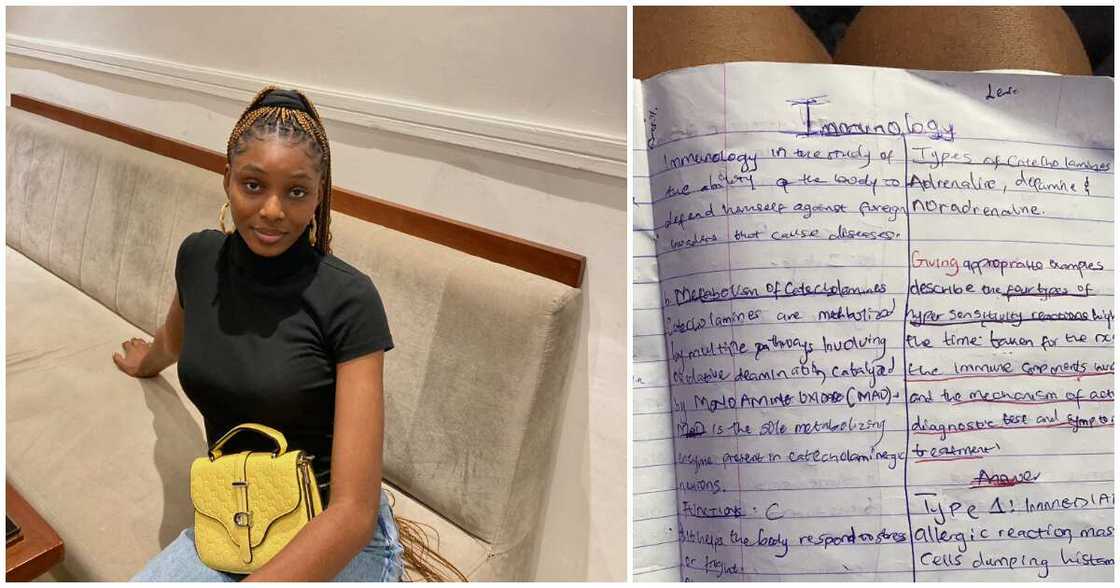 Immunology
Immunology in the study of
the ability of the body to
defend himself against foreign
that cause diseases.
Metabolism of Catecholamines
Catecholamines are metabolized
by multiple pathways Involving
oxidative deamination catalyzed
by MonoAmine Oxidase (MAO)
MaO is the sole metabolizing
enzyme present in catecholaminergic
neurons.
Functions: C
It helps the body respond to stress
or fright.
Types of Catecholamines
Adrenaline, dopamine &
noradrenaline.
Giving appropriate examples
describe the four types of
hyper sensitivity reactions
the time taken for the rx
the immune components
and the mechanism of
diagnostic test and
treatment
Answer
Type 1:
allergic reaction
Cells dumping